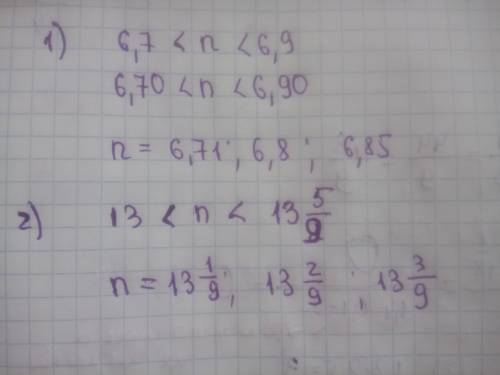 1) 6,7 < n < 6,9
6,70 < n < 6,90
n = 6,71; 6,8; 6,85
2) 13 < n < 13 5/9
n = 13 1/9; 13 2/9; 13 3/9